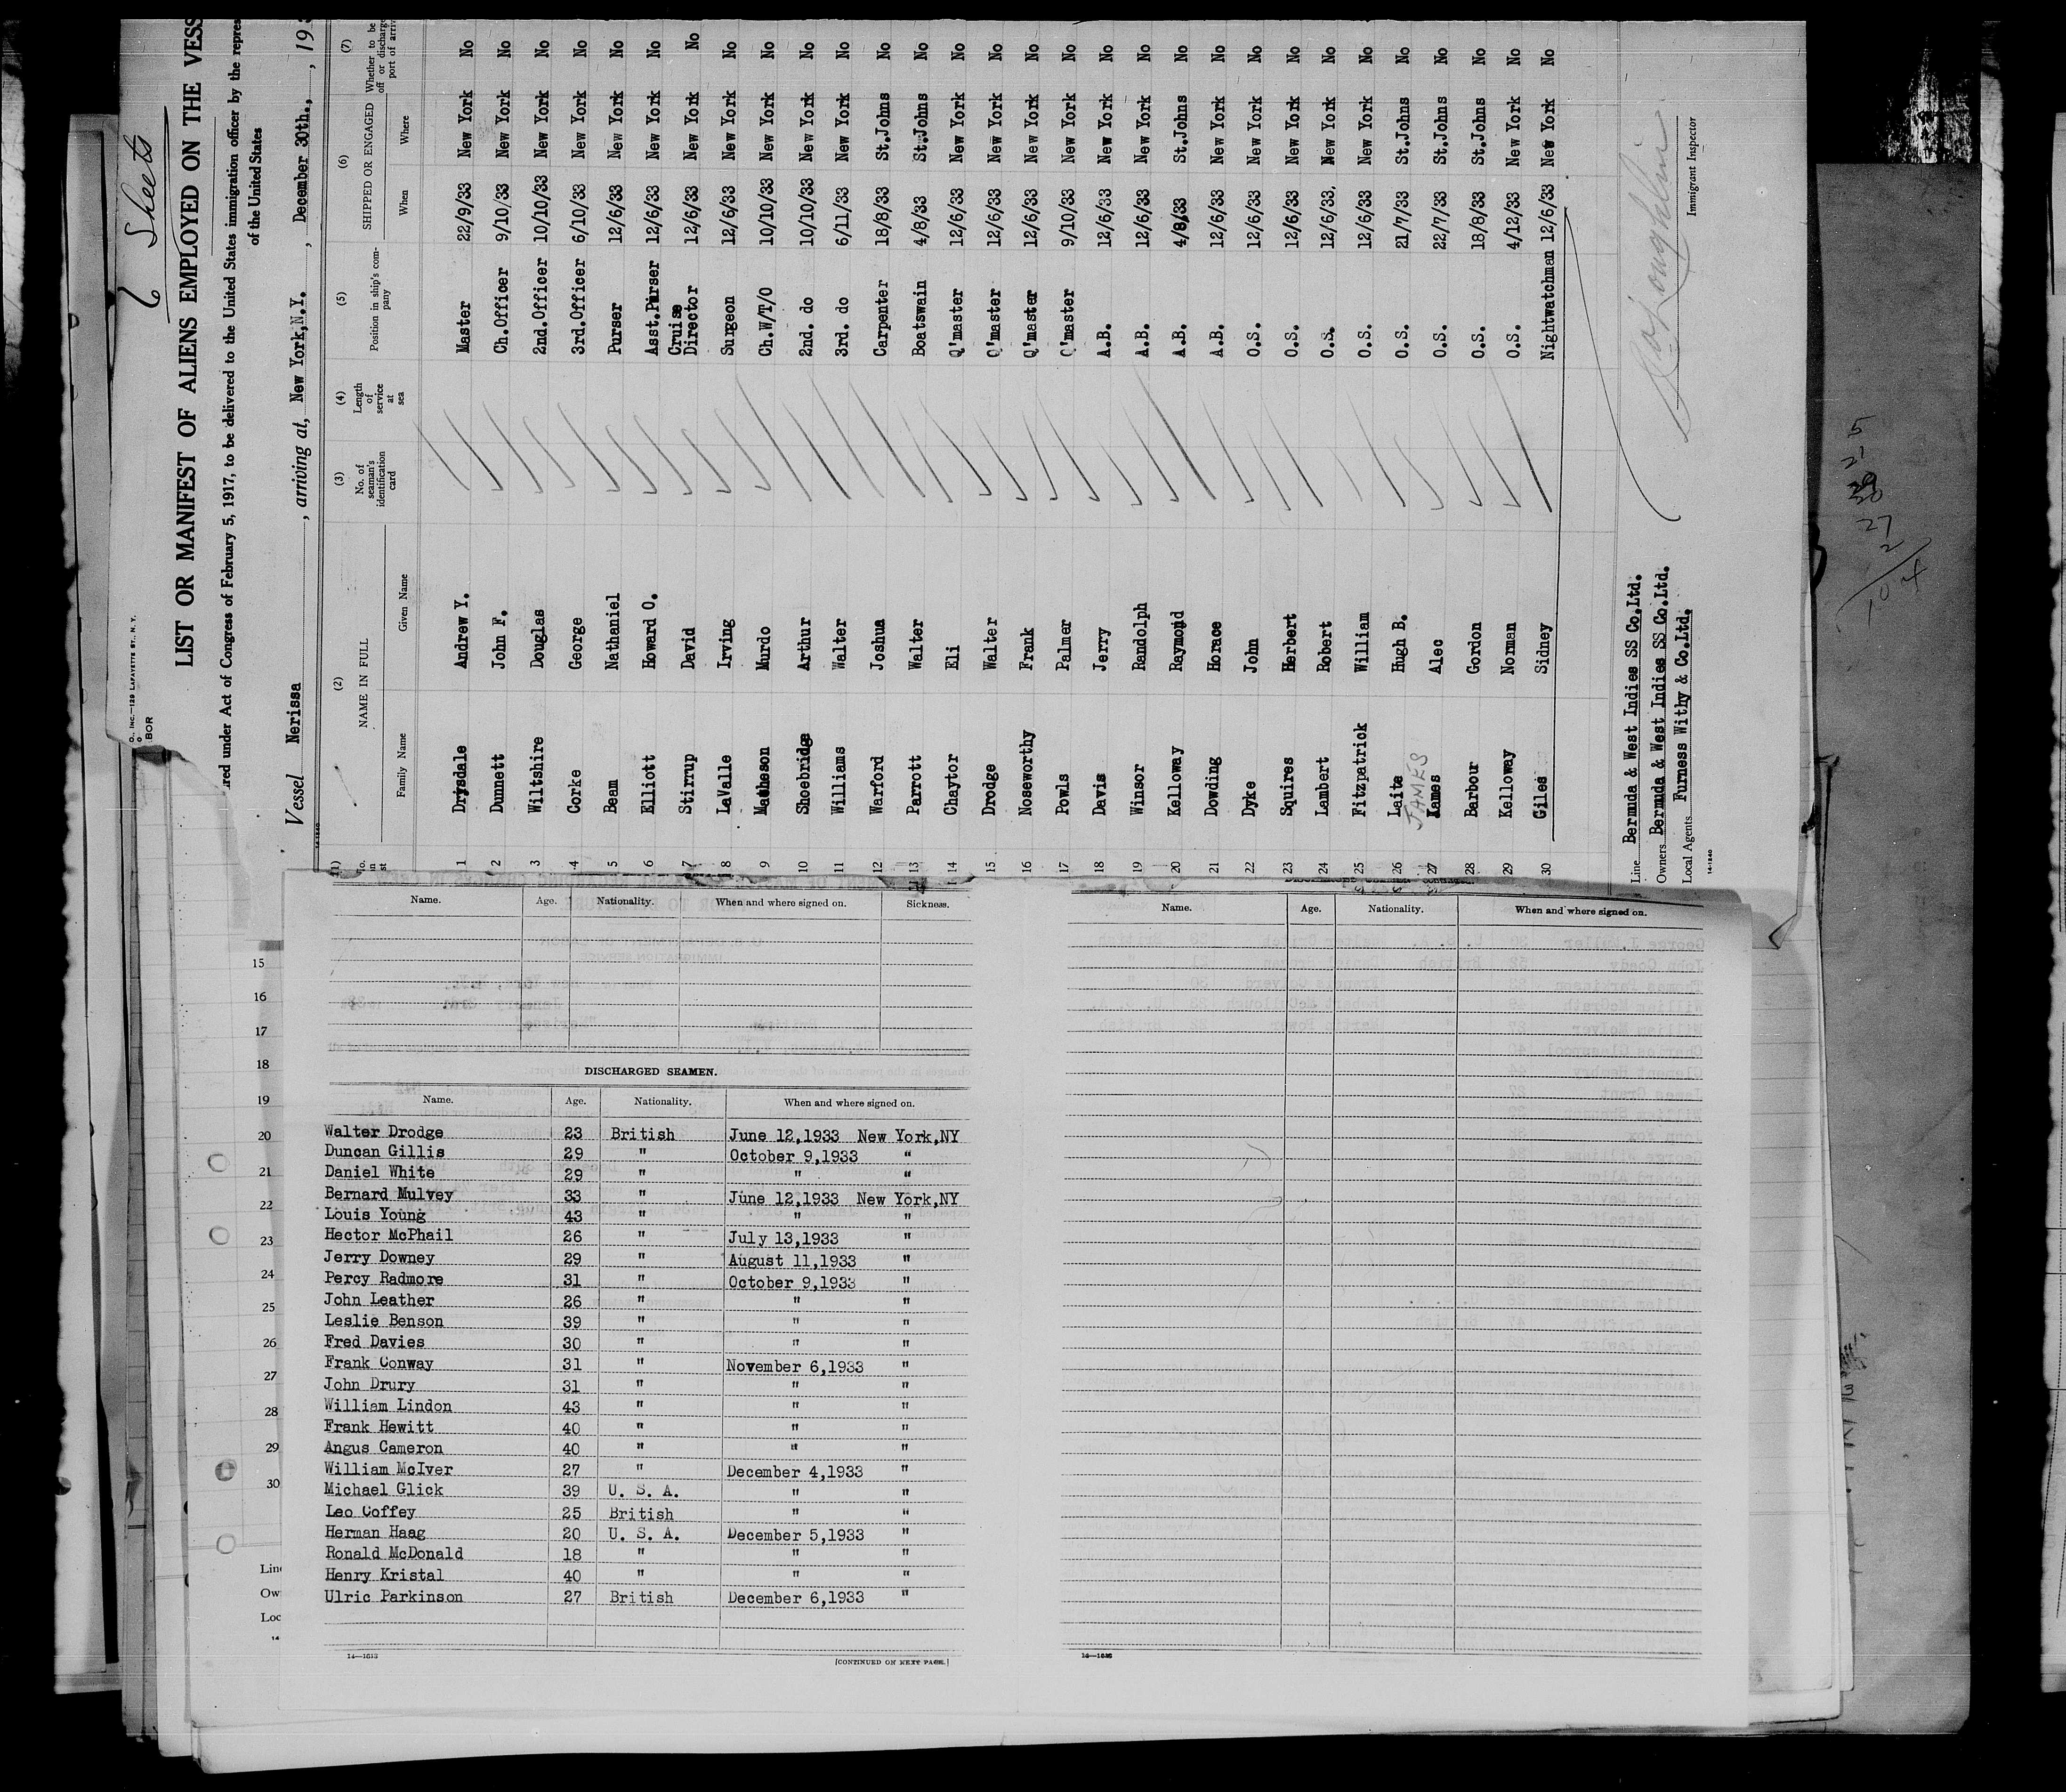 6 Sheets
O., INC.—129 LAFAYETTE ST., N. Y.
BOR
LIST OR MANIFEST OF ALIENS EMPLOYED ON THE VESS
red under Act of Congress of February 5, 1917, to be delivered to the United States immigration officer by the repres
of the United States
Vessel Nerissa, arriving at, New York, N.Y., December 30th., 19
(2) (3) (4) (5) (6) (7)
NAME IN FULL No. of seaman's identification card Length of service at sea Position in ship's company SHIPPED OR ENGAGED Whether to be off or discharge port of arriv
Family Name Given Name When Where
1 Drysdale Andrew Y. Master 22/9/33 New York No
2 Dunnett John F. Ch.Officer 9/10/33 New York No
3 Wiltshire Douglas 2nd.Officer 10/10/33 New York No
4 Corke George 3rd.Officer 6/10/33 New York No
5 Beam Nathaniel Purser 12/6/33 New York No
6 Elliott Howard O. Asst.Purser 12/6/33 New York No
7 Stirrup David Cruise Director 12/6/33 New York No
8 LaValle Irving Surgeon 12/6/33 New York No
9 Matheson Murdo Ch.W/T/O 10/10/33 New York No
10 Shoebridge Arthur 2nd. do 10/10/33 New York No
11 Williams Walter 3rd. do 6/11/33 New York No
12 Warford Joshua Carpenter 18/8/33 St.Johns No
13 Parrott Walter Boatswain 4/8/33 St.Johns No
14 Chaytor Eli Q'master 12/6/33 New York No
15 Drodge Walter Q'master 12/6/33 New York No
16 Noseworthy Frank Q'master 12/6/33 New York No
17 Powls Palmer Q'master 9/10/33 New York No
18 Davis Jerry A.B. 12/6/33 New York No
19 Winsor Randolph A.B. 12/6/33 New York No
20 Kelloway Raymond A.B. 4/8/33 St.Johns No
21 Dowding Horace A.B. 12/6/33 New York No
22 Dyke John O.S. 12/6/33 New York No
23 Squires Herbert O.S. 12/6/33 New York No
24 Lambert Robert O.S. 12/6/33. New York No
25 Fitzpatrick William O.S. 12/6/33 New York No
26 Laite Hugh B. O.S. 21/7/33 St.Johns No
JAMES
27 James Alec O.S. 22/7/33 St.Johns No
28 Barbour Gordon O.S. 18/8/33 St.Johns No
29 Kelloway Norman O.S. 4/12/33 New York No
30 Giles Sidney Nightwatchman 12/6/33 New York No
Line Bermuda & West Indies SS Co.Ltd.
Owners Bermuda & West Indies SS Co.Ltd.
Local Agents Furness Withy & Co.Ltd.
Immigrant Inspector
14-1240
Name. Age. Nationality. When and where signed on. Sickness.
Name. Age. Nationality. When and where signed on.
15
16
17
18
19
20
21
22
23
24
25
26
27
28
29
30
Line
Ow
Loc
14
DISCHARGED SEAMEN.
Name. Age. Nationality. When and where signed on.
Walter Drodge 23 British June 12,1933 New York,NY
Duncan Gillis 29 " October 9,1933 "
Daniel White 29 " " "
Bernard Mulvey 33 " June 12,1933 New York,NY
Louis Young 43 " " "
Hector McPhail 26 " July 13,1933 "
Jerry Downey 29 " August 11,1933 "
Percy Radmore 31 " October 9,1933 "
John Leather 26 " " "
Leslie Benson 39 " " "
Fred Davies 30 " " "
Frank Conway 31 " November 6,1933 "
John Drury 31 " " "
William Lindon 43 " " "
Frank Hewitt 40 " " "
Angus Cameron 40 " " "
William McIver 27 " December 4,1933 "
Michael Glick 39 U. S. A. " "
Leo Coffey 25 British " "
Herman Haag 20 U. S. A. December 5,1933 "
Ronald McDonald 18 " " "
Henry Kristal 40 " " "
Ulric Parkinson 27 British December 6,1933 "
14—1613
[CONTINUED ON NEXT PAGE.]